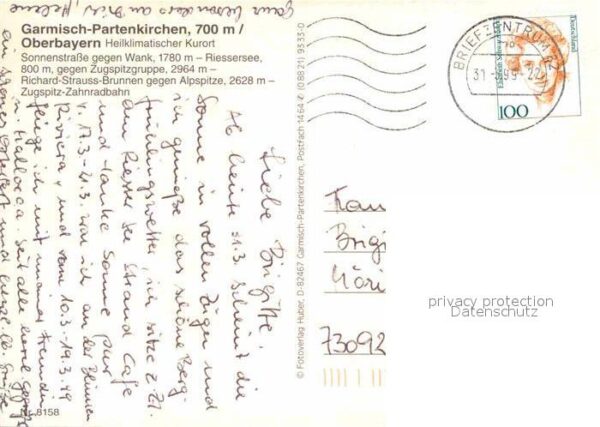 Garmisch-Partenkirchen, 700 m /
Oberbayern Heilklimatischer Kurort
Sonnenstraße gegen Wank, 1780 m – Riessersee,
800 m, gegen Zugspitzgruppe, 2964 m –
Richard-Strauss-Brunnen gegen Alpspitze, 2628 m –
Zugspitz-Zahnradbahn
Liebe Brigitte,
Ab heute 31.3. scheint die
Sonne in vollen Zügen und
ich genieße das schöne Berg-
frühlingswetter, ich sitze z.Zt.
am Riesser See Strand Café
und tanke Sonne pur
v. 17.3.-21.3. war ich an der Blumen
Riviera und vom 10.3.-19.3.99
fliege ich mit meiner Freundin
n. Mallorca. Seit alle
ganz besonders an Dries, Helene
Nr. 8158
© Fotoverlag Huber, D-82467 Garmisch-Partenkirchen, Postfach 1464 (0 88 21) 93 33-0
BRIEFZENTRUM 82
31 99-22
Deutschland
100
Frau
Brigi
73092
privacy protection
Datenschutz